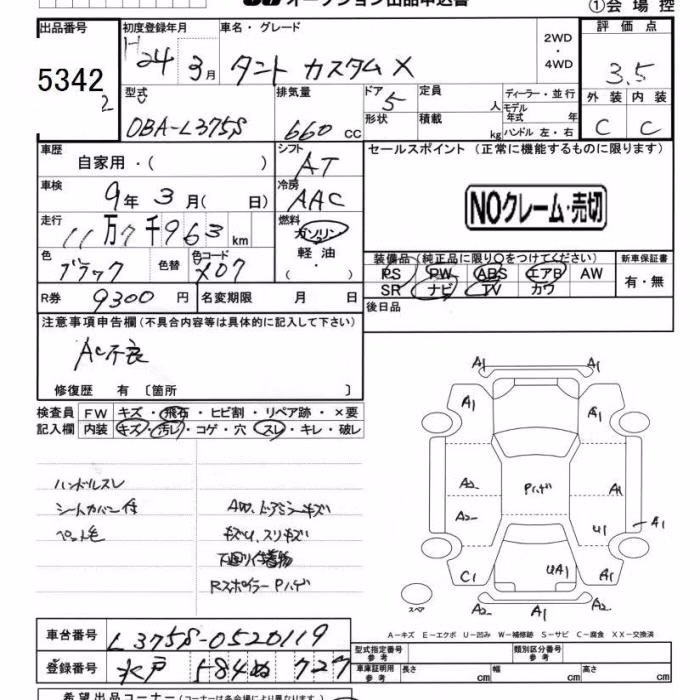 オークション出品申込書
①会場控
出品番号 初度登録年月 車名・グレード 評価点
5342 2 H24 3月 タント カスタムX 2WD ・ 4WD 3.5
型式 排気量 ドア 定員 ディーラー・並行 外装 内装
DBA-L375S 660 CC 5 人 モデル年式 年 C C
形状 積載 kg ハンドル 左・右
車歴 自家用・( ) シフト AT セールスポイント (正常に機能するものに限ります)
車検 9年 3月( 日) 冷房 AAC NOクレーム・売切
走行 11万7千963km 燃料 ガソリン
軽油
・( )
色 ブラック 色替 色コード X07
装備品(純正品に限り○をつけてください) 新車保証書
PS PW ABS エアB AW 有・無
SR ナビ TV カワ
R券 9300円 名変期限 月 日 後日品
注意事項申告欄(不具合内容等は具体的に記入して下さい)
AC不良
修復歴 有 〔箇所 〕
検査員 FW キズ・飛石・ヒビ割・リペア跡・×要
記入欄 内装 キズ・汚レ・コゲ・穴・スレ・キレ・破レ
ハンドルスレ
シートカバー付
ペット毛
AW、ドアミラーキズ
キズU、スリキズ
下廻り付着物
RスポイラーPハゲ
A1
A1 A1
A2 Pハゲ A1
A2 U1 A1
C1 UA1 A1
スペア A2 A2
A-キズ E-エクボ U-凹み W-補修跡 S-サビ C-腐食 XX-交換済
車台番号 L375S-0520119
型式指定番号 参考 類別区分番号 参考
登録番号 水戸 584 ぬ 727
車庫証明用 参考 長さ cm 幅 cm 高さ cm
希望出品コーナー